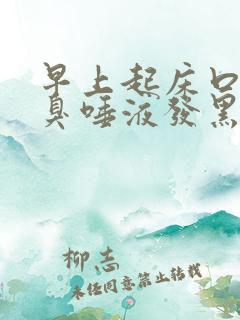 早上起床口
臭唾液發黑
柳志
未经同意禁止转载